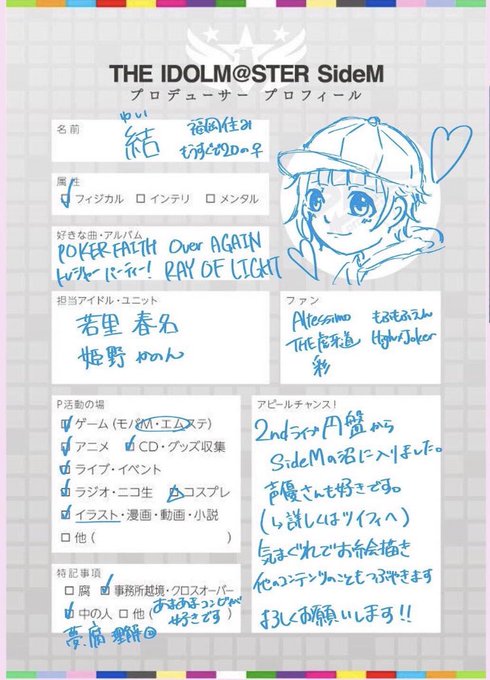 THE IDOLM@STER SideM
プロデューサー プロフィール
名前
ゆい
結
福岡住み
もうすぐ20の♀
属性
フィジカル インテリ メンタル
好きな曲・アルバム
POKER FAITH Over AGAIN
トレジャーパーティー! RAY OF LIGHT
担当アイドル・ユニット
若里 春名
姫野 かのん
ファン
Altessimo もふもふえん
THE虎牙道 High×Joker
彩
P活動の場
ゲーム (モバM・エムステ)
アニメ CD・グッズ収集
ライブ・イベント
ラジオ・ニコ生 コスプレ
イラスト・漫画・動画・小説
他 ( )
アピールチャンス!
2ndライブ円盤から
SideMの沼に入りました。
声優さんも好きです。
(↳詳しくはツイフィへ)
気まぐれでお絵描き
他のコンテンツのこともつぶやきます
よろしくお願いします!!
特記事項
腐 事務所越境・クロスオーバー
中の人 他 ( 好きです )
夢、腐 理解